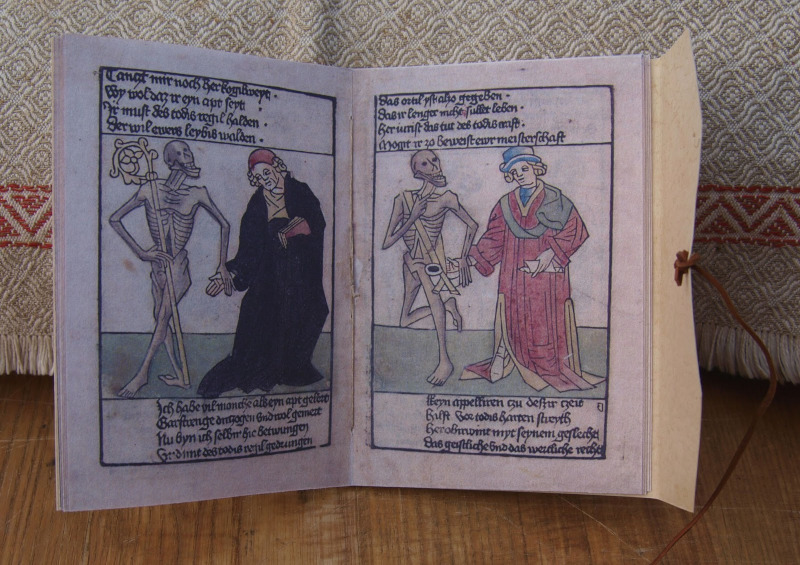 Tanczt mir noch her kogilweyt
Wy wol daz ir eyn apt seyt
Ir must des todis regil halden
Der wil ewers leybis walden
Ich habe vil monche als eyn apt geleret
Gar strenge dirzogen und wol gemert
Nu byn ich selbir hie betwungen
des todis regil gedrungen
das ortil yst also gegeben
Das ir lenger nicht sullet leben
Her iurist das tut des todis craft
Mogit ir zo beweist ewr meisterschaft
Keyn appelliren czu desir czeit
hilft vor todis harten streyth
Her obirwint myt seynem geslecht
Das geistliche und das wertliche recht